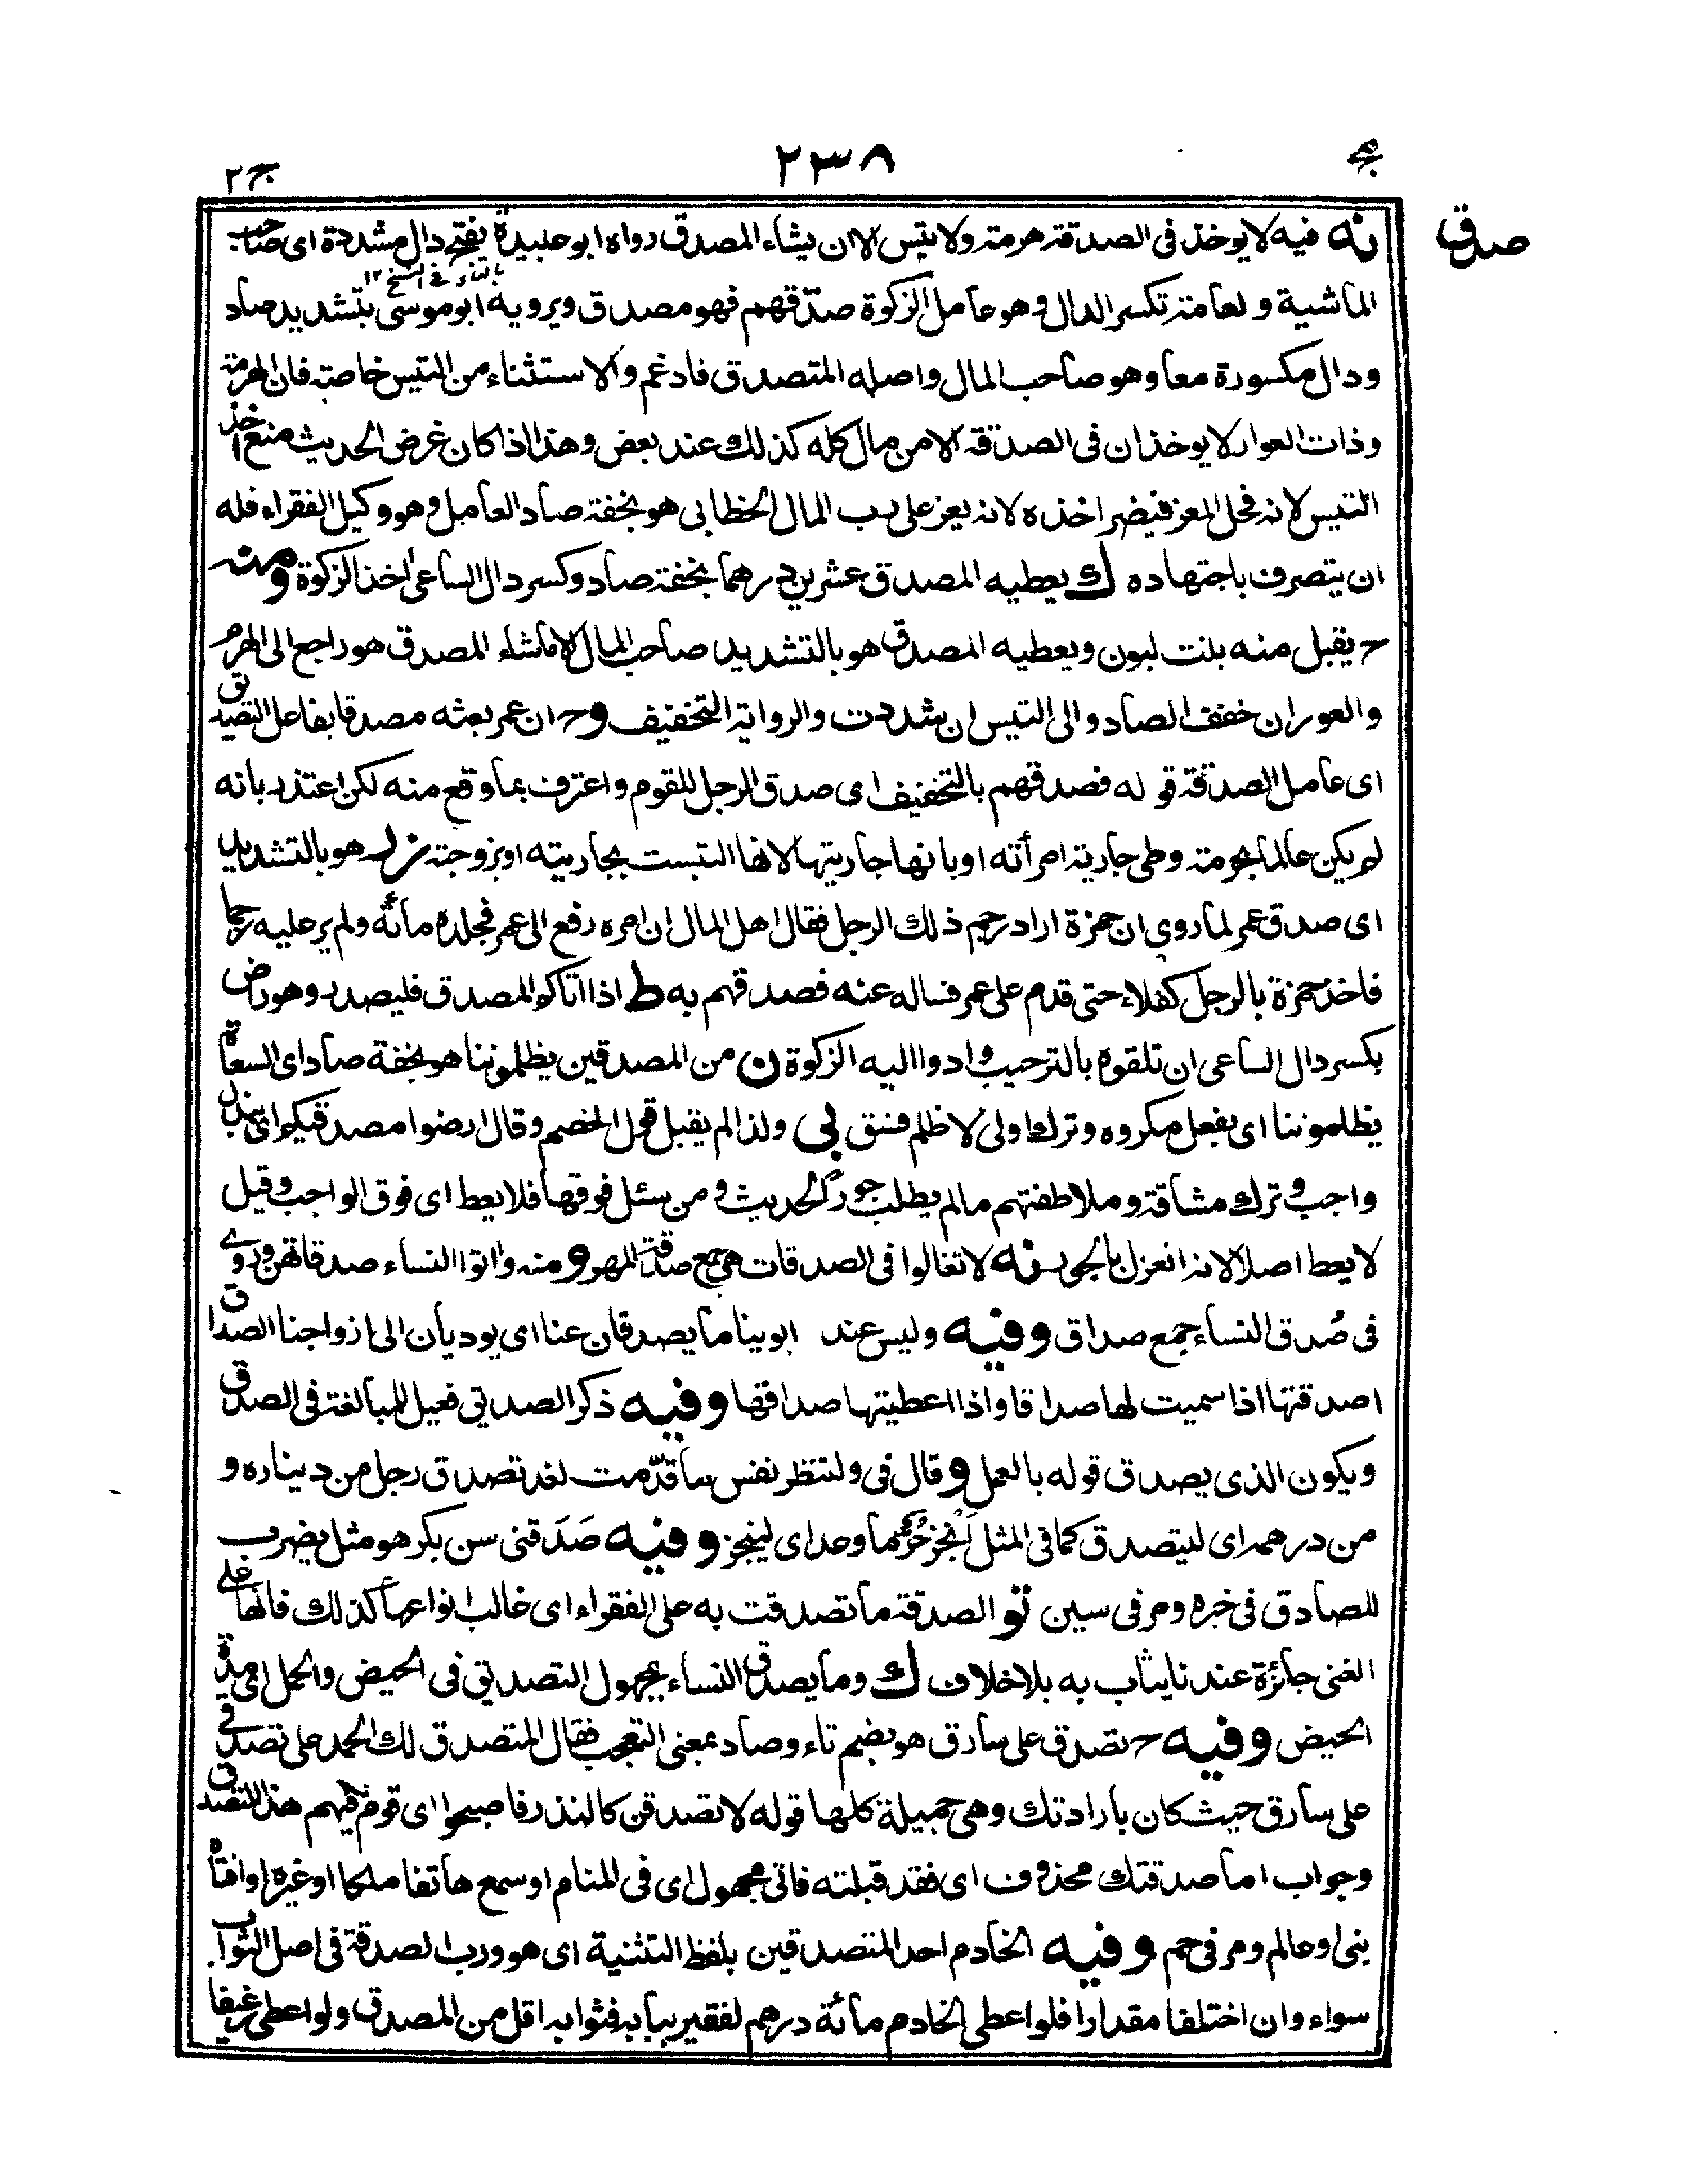 مجمع
٢٣٨
ج ٢
صدق
نه فيه لا يوخذ فى الصدقة هرمة ولا تيس الا ان يشاء المصدق رواه ابو عبيدة بفتح دال مشددة اى صاحب
بالتاء فى النسخ ١٢
الماشية و لعامة تكسر الدال وهو عامل الزكوة صدّقهم فهو مصدق ويرويه ابو موسى بتشديد صاد
ودال مكسورة معا وهو صاحب المال واصله المتصدق فادغم والاستثناء من التيس خاصة فان الهرمة
وذات العوار لا يوخذان فى الصدقة الا من مال كله كذلك عند بعض وهذا اذا كان غرض الحديث منع اخذ
التيس لانه فحل المعز فيضر اخذه لانه يعز على رب المال الخطابى هو بخفة صاد العامل وهو وكيل الفقراء فله
ان يتصرف باجتهاده ك يعطيه المصدق عشرين درهما بخفة صاد وكسر دال الساعى اخذ الزكوة ومنه
ح يقبل منه بنت لبون ويعطيه المصدق هو بالتشديد صاحب المال الا ما شاء المصدق هو راجع الى الهرم
والعور ان خفف الصاد والى التيس ان شددت والرواية التخفيف وح ان عمر بعثه مصدقا بفاعل التصديق
اى عامل الصدقة قو له فصدقهم بالتخفيف اى صدق الرجل للقوم واعترف بما وقع منه لكن اعتذر بانه
لم يكن عالما بحرمة وطى جارية امرأته او بانها جاريتها لانها التبست بجاريته او بزوجته نر هو بالتشديد
اى صدق عمر لما روي ان حمزة اراد رجم ذلك الرجل فقال اهل المال ان امره رفع الى عمر فجلده مائة ولم ير عليه رجما
فاخذ حمزة بالرجل كفلاء حتى قدم على عمر فساله عنه فصدقهم به ط اذا اتاكم المصدق فليصدر وهو راض
بكسر دال الساعى ان تلقوه بالترحيب وادوا اليه الزكوة ن من المصدقين يظلموننا هو بخفة صاد اى السعاة
يظلموننا اى بفعل مكروه وترك اولى لا ظلم فسق بي ولذا لم يقبل قول الخصم وقال ارضوا مصدقيكم اى ببذل
واجب وترك مشاقة وملاطفتهم مالم يطلب جورا الحديث ومن سئل فوقها فلا يعط اى فوق الواجب وقيل
لا يعط اصلا لانه انعزل بالجور نه لا تغالوا فى الصدقات هى جمع صدقة المهر و منه واتوا النساء صدقاتهن وروى
فى صُدق النساء جمع صداق وفيه وليس عند ابوينا ما يصدقان عنا اى يوديان الى ازواجنا الصداق
اصدقتها اذا سميت لها صداقا واذا اعطيتها صداقها وفيه ذكر الصديق فعيل للمبالغة فى الصدق
ويكون الذى يصدق قوله بالعمل و قال فى ولتنظر نفس ما قدّمت لغد تصدق رجل من ديناره و
من درهمه اى ليتصدق كما فى المثل أَنجز حُرٌّ ما وعد اى لينجز وفيه صَدَقنى سن بكره هو مثل يضرب
للصادق فى خبره ومر فى سين تو الصدقة ما تصدقت به على الفقراء اى غالب انواعها كذلك فانها على
الغنى جائزة عندنا يثاب به بلا خلاف ك وما يصدق النساء بمجهول التصديق فى الحيض والحمل اى مدة
الحيض وفيه ح تصدق على سارق هو بضم تاء وصاد بمعنى التعجب فقال المتصدق لك الحمد على تصدقى
على سارق حيث كان بارادتك وهى جميلة كلها قوله لا تصدقن كالنذر فاصبحوا اى قوم فيهم هذا المتصدق
وجواب اما صدقتك محذوف اى فقد قبلته فاتى مجهول اى فى المنام او سمع هاتفا ملكا او غيره او افتاه
نبى او عالم ومر فى حم وفيه الخادم احد المتصدقين بلفظ التثنية اى هو ورب الصدقة فى اصل الثواب
سواء وان اختلفا مقدارا فلو اعطى الخادم مائة درهم لفقير ببابه فثوابه اقل من المصدق ولو اعطى رغيفا